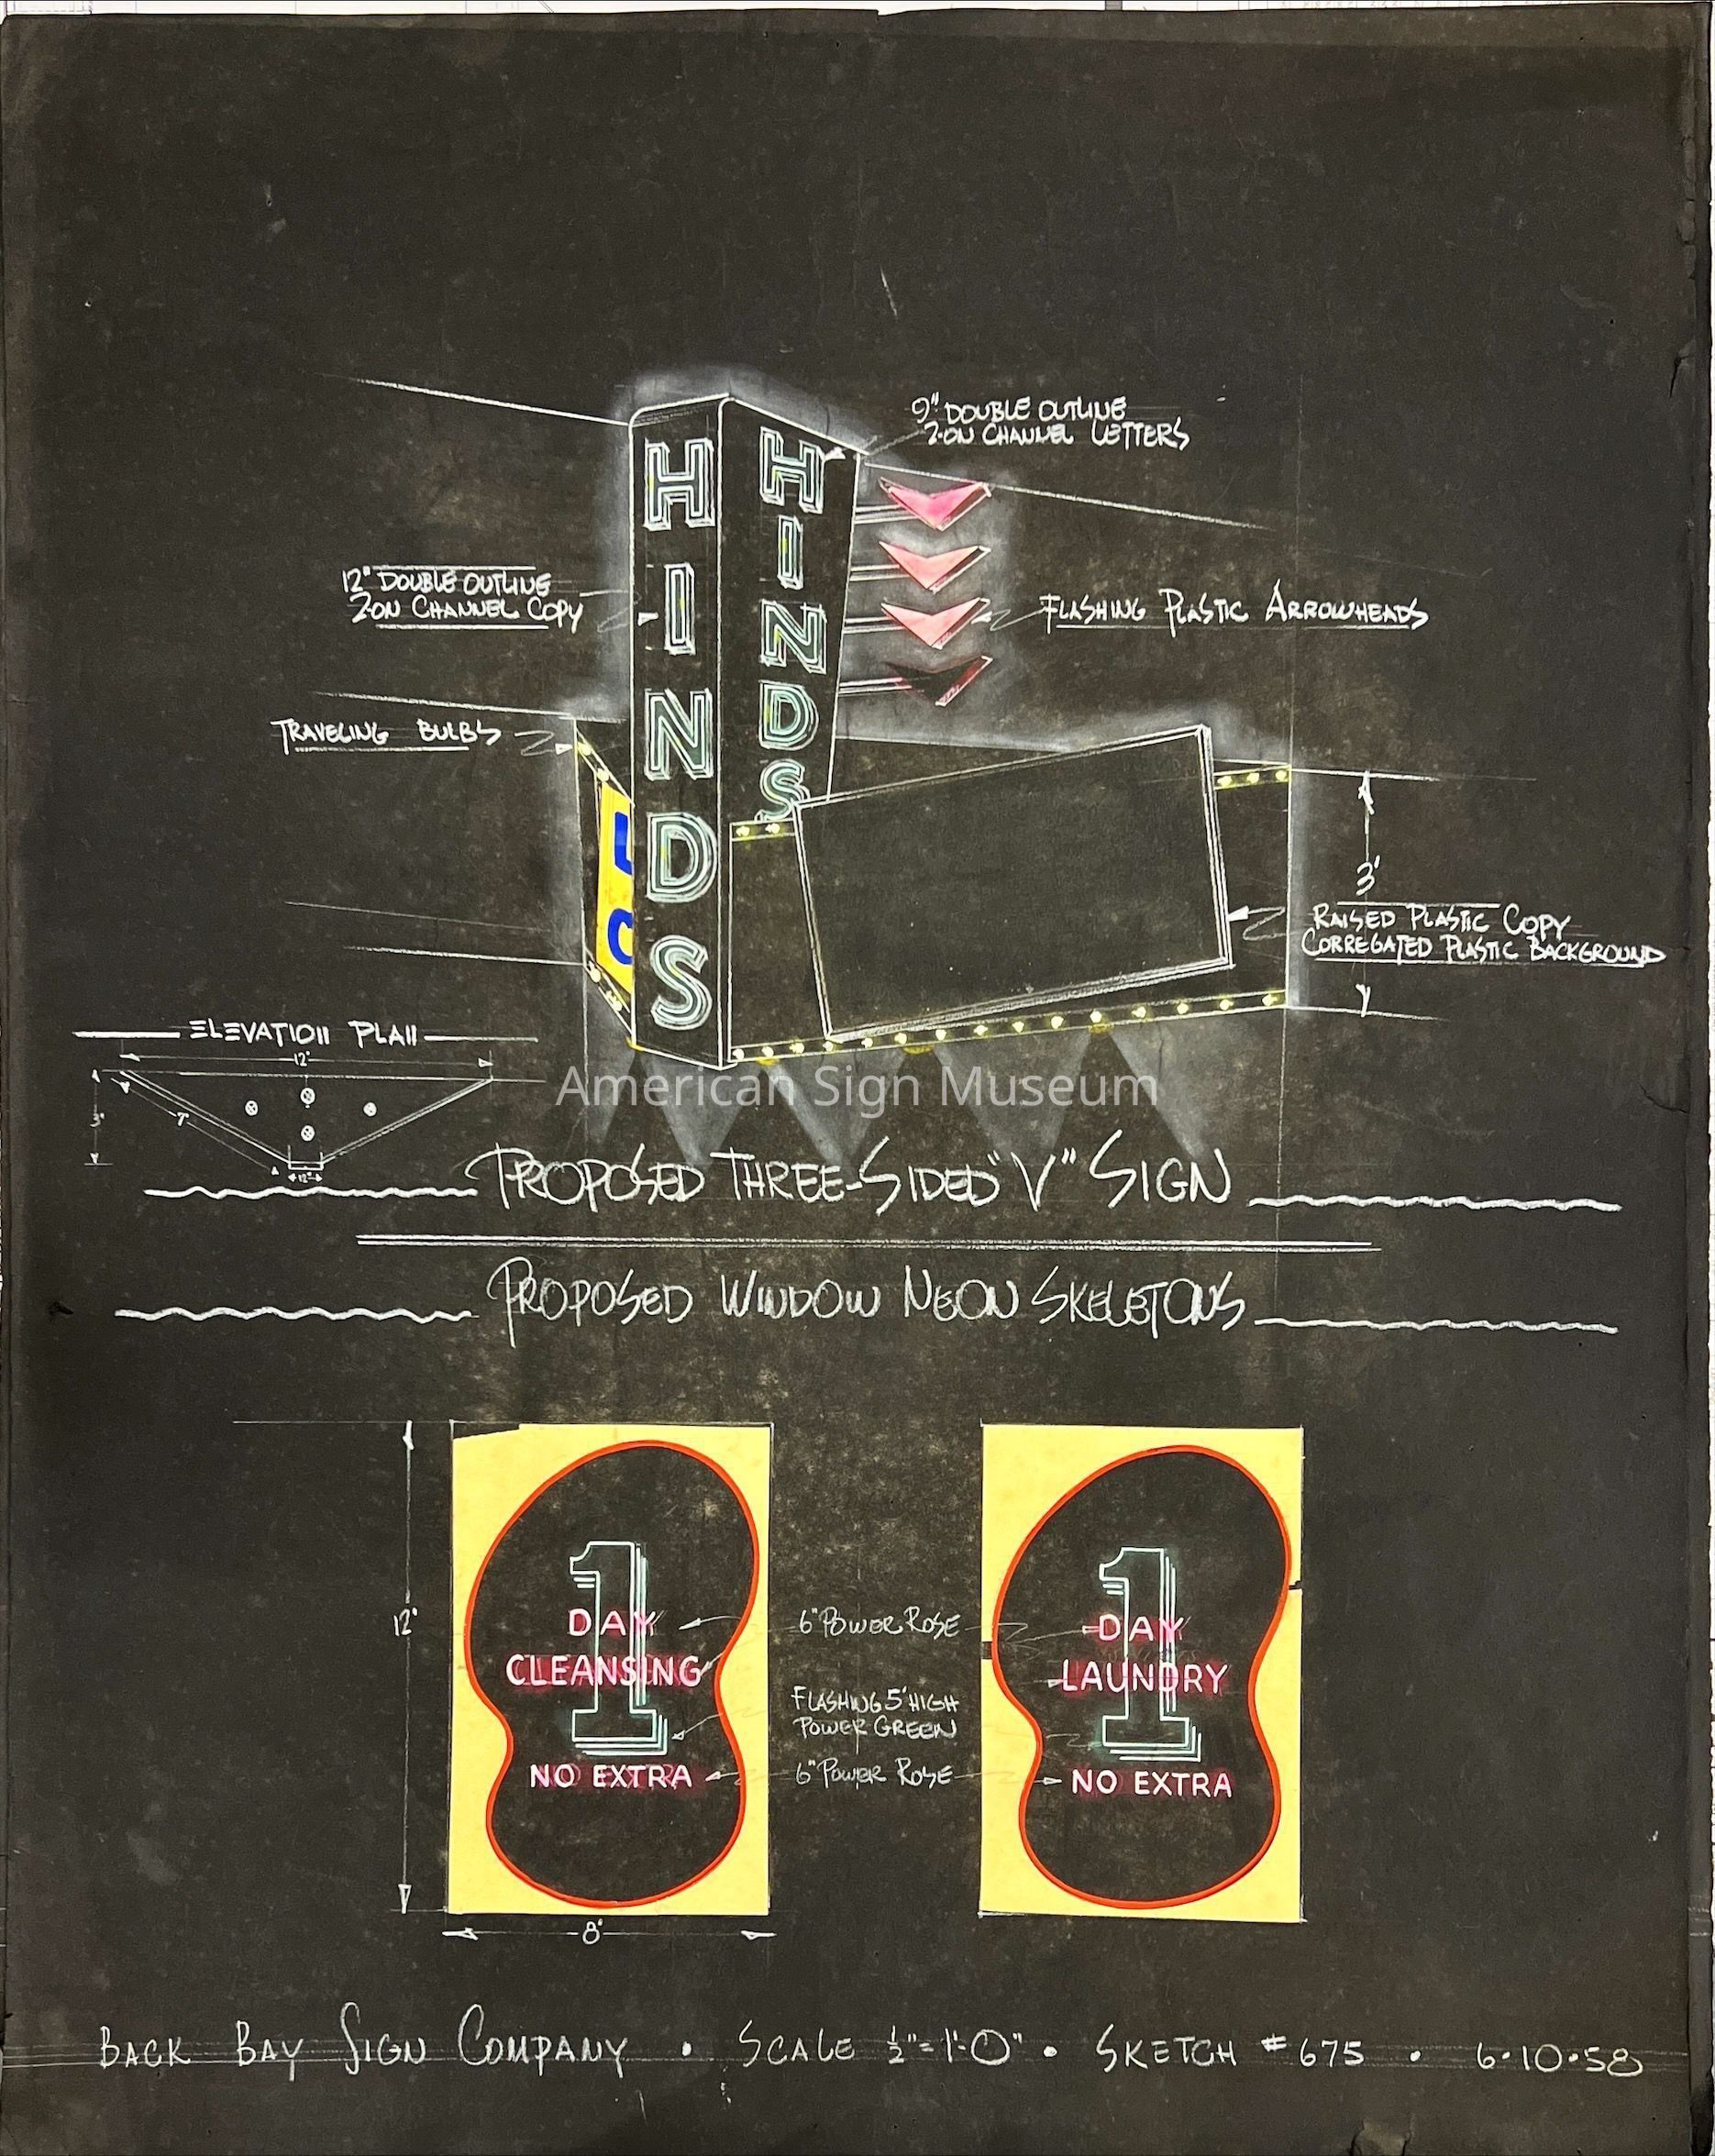 9" DOUBLE OUTLINE
2-ON CHANNEL LETTERS
HINDS
HINDS
12" DOUBLE OUTLINE
2-ON CHANNEL COPY
FLASHING PLASTIC ARROWHEADS
TRAVELING BULBS
L
C
3'
RAISED PLASTIC COPY
CORREGATED PLASTIC BACKGROUND
ELEVATION PLAN
12'
3'
7'
12"
American Sign Museum
PROPOSED THREE-SIDED "V" SIGN
PROPOSED WINDOW NEON SKELETONS
12'
1
DAY
CLEANSING
NO EXTRA
6" POWER ROSE
FLASHING 5' HIGH
POWER GREEN
6" POWER ROSE
1
DAY
LAUNDRY
NO EXTRA
8'
BACK BAY SIGN COMPANY • SCALE ½"=1'-0" • SKETCH #675 • 6•10•58